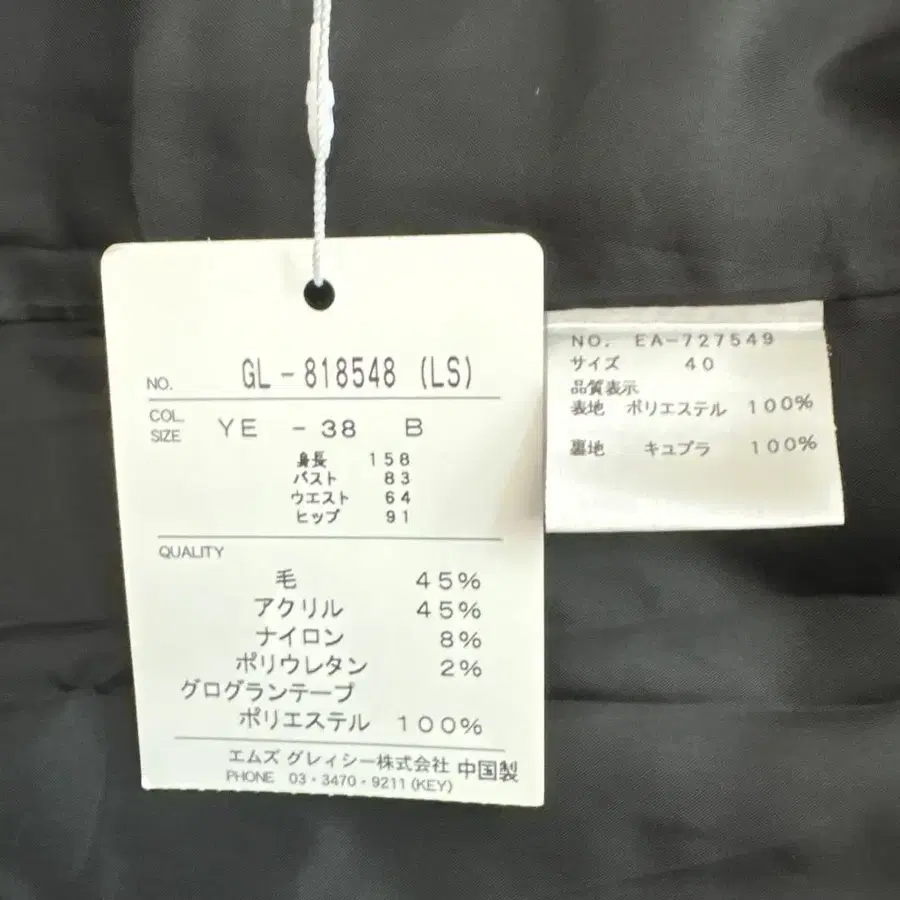 NO. GL-818548 (LS)
COL.
SIZE YE -38 B
身長 158
バスト 83
ウエスト 64
ヒップ 91
QUALITY
毛 45%
アクリル 45%
ナイロン 8%
ポリウレタン 2%
グログランテープ
ポリエステル 100%
エムズ グレィシー株式会社 中国製
PHONE 03・3470・9211(KEY)
NO. EA-727549
サイズ 40
品質表示
表地 ポリエステル 100%
裏地 キュプラ 100%